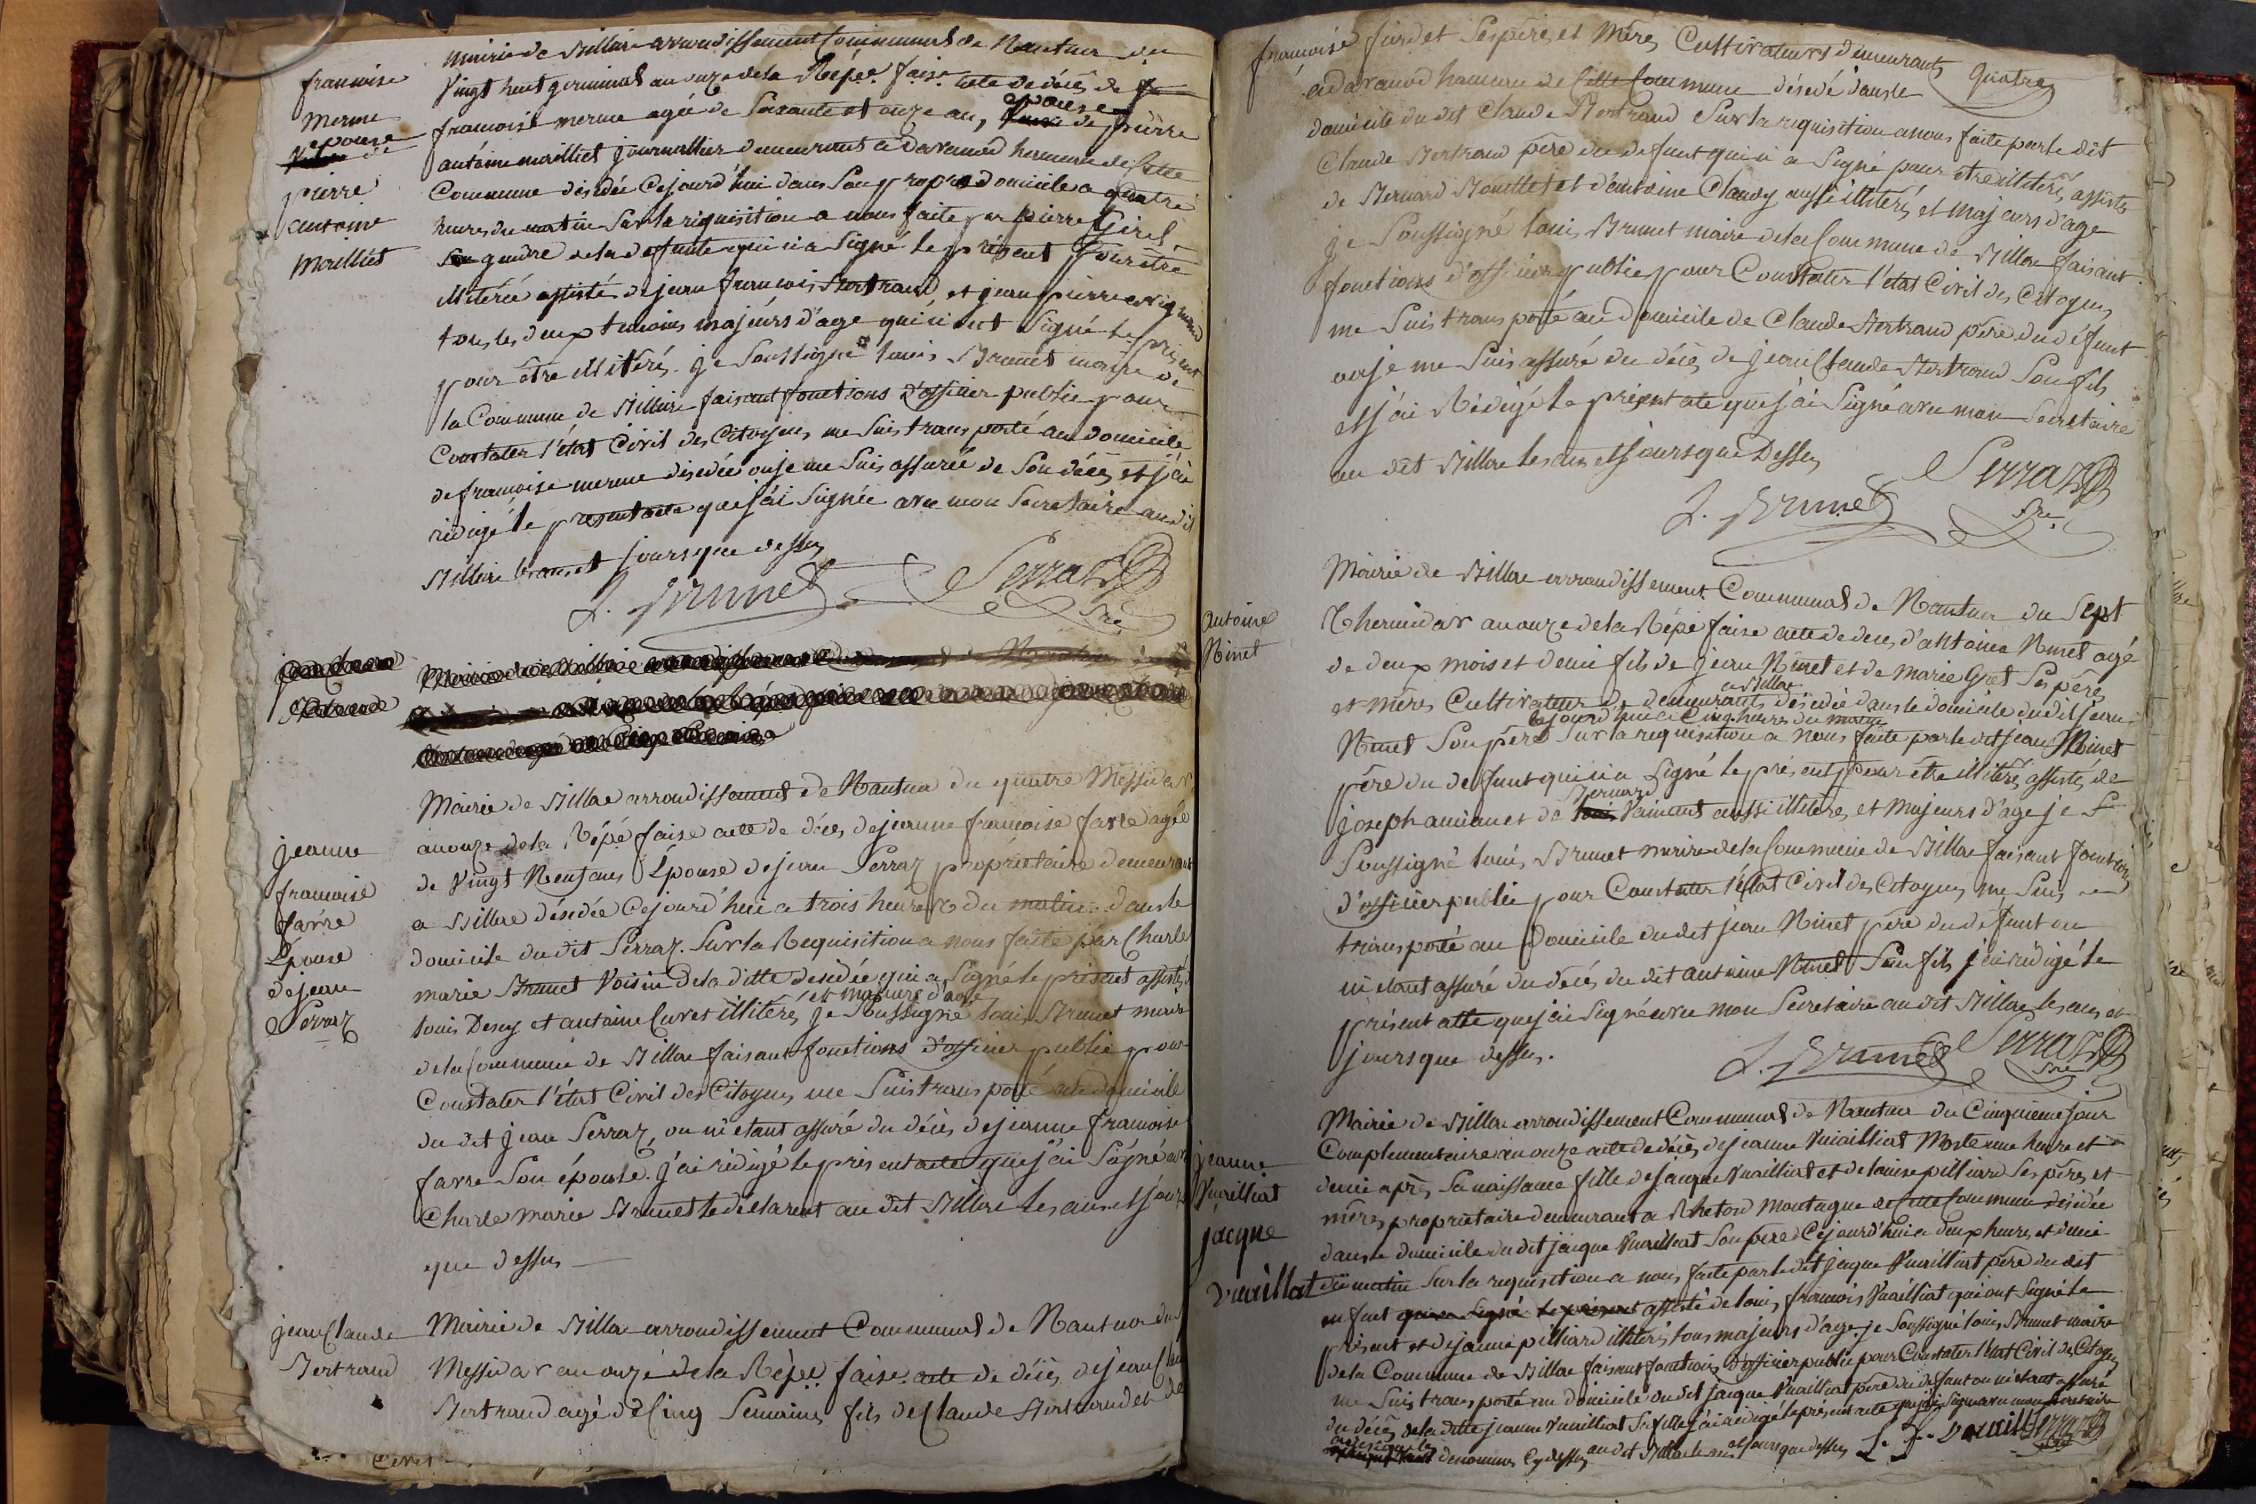 mairie de Billiare arrondissement Communal de Nantua du
françoise
Vingt huit germinal an onze de la Répé. faise acte de décès de
merme
françoise merme agée de Soixante et onze an, épouse de pierre
epouse
de
antoine mailliet journallier demeurant a davanod hameau de Cette
pierre
Commune désédée Cejourd'hui dans Son propre domicile a quatre
antoine
heures du matin Sur la requisition a nous faite par pierre Girel
mailliet
gendre de la defunte qui n'a Signé le présent pour être
illitéré assisté de jean françois Bertrand, et jean pierre
tous les deux temoins majeurs d'age qui n'ont Signé le présent
pour être illitérés. je Soussigné Louis Brunet maire de
la Commune de Billiare faisant fonctions d'officier public pour
Constater l'état Civil des Citoyens, me Suis transporté au domicile
de françoise merme désédée ou je me Suis assurée de Son décès et j'ai
rédigé le present acte que j'ai Signée avec mon Secretaire au dit
Billiare les an et jours que dessus
L. Brunet Serraz
Sre
Mairie de Billae arrondissement de Nantua du quatre Messidor
an onze de la Répé faise acte de décès de jeanne françoise favre agée
jeanne
de Vingt Neuf ans Épouse de jean Serraz propriétaire demeurant
françoise
a Billae désédée Cejourd'hui a trois heures du matin dans le
favre
domicile du dit Serraz. Sur la Requisition a nous faite par Charle
Épouse
marie Brunet Voisin de la ditte desédée qui a Signé le présent assisté de
de jean
et majeurs d'age
Serraz
louis Deny et antoine Curet illitérés, je Soussigné Louis Brunet maire
de la Commune de Billae faisant fonctions d'officier public pour
Constater l'état Civil des Citoyens me Suis transporté au domicile
du dit jean Serraz, ou m'étant assuré du décès de jeanne françoise
favre Son épouse. j'ai rédigé le present acte que j'ai Signé avec
Charle marie Brunet le déclarent au dit Billae les an et jours
que dessus
jean Claude
Mairie de Billa arrondissement Communal de Nantua du
Bertrand
Messidor an onze de la Répé. faise acte de décès de jean Claude
Bertrand agé de Cinq Semaines fils de Claude Bertrand et de
françoise Ses père, et Mère, Cultivateurs demeurants quatre
a davanod hameau de Cette Commune désédé dans le
domicile du dit Claude Bertrand Sur la requisition a nous faite par le dit
Claude Bertrand père du defunt qui n'a Signé pour être illitéré, assisté
de Bernard et d'antoine Claudy aussi illitérés et majeurs d'age
je Soussigné Louis Brunet maire de la Commune de Billae faisant
fonctions d'officier public pour Constater l'état Civil des Citoyens
me Suis transporté au domicile de Claude Bertrand père du défunt
ou je me Suis assuré du décès de jean Claude Bertrand Son fils
et j'ai Rédigé le présent acte que j'ai Signé avec mon Secretaire
au dit Billae les an et jours que Dessus
L. Brunet Serraz
Sre
Mairie de Billae arrondissement Communal de Nantua du Sept
antoine
Thermidor an onze de la Répé faise acte de décès d'antoine Ninet agé
Ninet
de deux mois et demi fils de jean Ninet et de marie Ses père,
a Billae
et mère, Cultivateurs demeurants, désédé dans le domicile du dit jean
Cejourd'hui a Cinq heures du matin
Ninet Son père Sur la requisition a nous faite par le dit jean Ninet
père du defunt qui n'a Signé le présent pour être illitéré, assisté, de
Bernard
joseph et de aussi illitérés, et majeurs d'age je
Soussigné Louis Brunet maire de la Commune de Billae faisant fonctions
d'officier public pour Constater l'état Civil des Citoyens, me Suis
transporté au domicile du dit jean Ninet père du defunt ou
m'étant assuré du décès du dit antoine Ninet Son fils j'ai rédigé le
présent acte que j'ai Signé avec mon Secretaire au dit Billae les an et
jours que dessus.
L. Brunet Serraz
Sre
Mairie de Billae arrondissement Communal de Nantua du Cinquieme jour
jeanne
Complementaire an onze acte de décès de jeanne Vuailliat Morte une heure et
Vuailliat
demi après Sa naissance fille de jacque Vuailliat et de louise pilliard Ses père, et
mère, proprietaire demeurant a Montagne de Cette Commune désédée
jacque
dans le domicile du dit jacque Vuailliat Son père Cejourd'hui a deux heures et demie
Vuaillat
du matin Sur la requisition a nous faite par le dit jacque Vuailliat père du dit
enfent assisté de louis françois Vuailliat qui ont Signé le
présent et de jeanne pilliard illitéré, tous majeurs d'age. je Soussigné Louis Brunet maire
de la Commune de Billae faisant fonctions d'officier public pour Constater l'état Civil des Citoyens
me Suis transporté au domicile du dit jacque Vuailliat père du defunt ou m'etant assuré
du décès de la ditte jeanne Vuailliat Sa fille j'ai rédigé le présent acte que j'ai Signé avec mon Secretaire
denommés Cy dessus au dit Billae les an et jours que dessus L. F. Vuaill Serraz